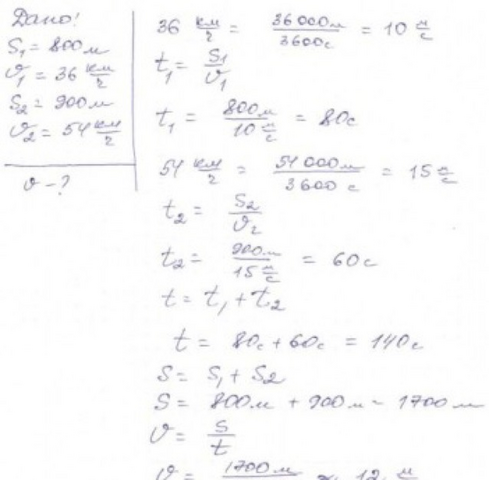 Дано:
S₁ = 800 м
υ₁ = 36 км/ч
S₂ = 900 м
υ₂ = 54 км/ч
υ - ?
36 км/ч = 36000м/3600с = 10 м/с
t₁ = S₁/υ₁
t₁ = 800м/10 м/с = 80с
54 км/ч = 54 000м/3600 с = 15 м/с
t₂ = S₂/υ₂
t₂ = 900м/15 м/с = 60с
t = t₁ + t₂
t = 80с + 60с = 140с
S = S₁ + S₂
S = 800м + 900м = 1700 м
υ = S/t
υ = 1700 м ≈ 12 м